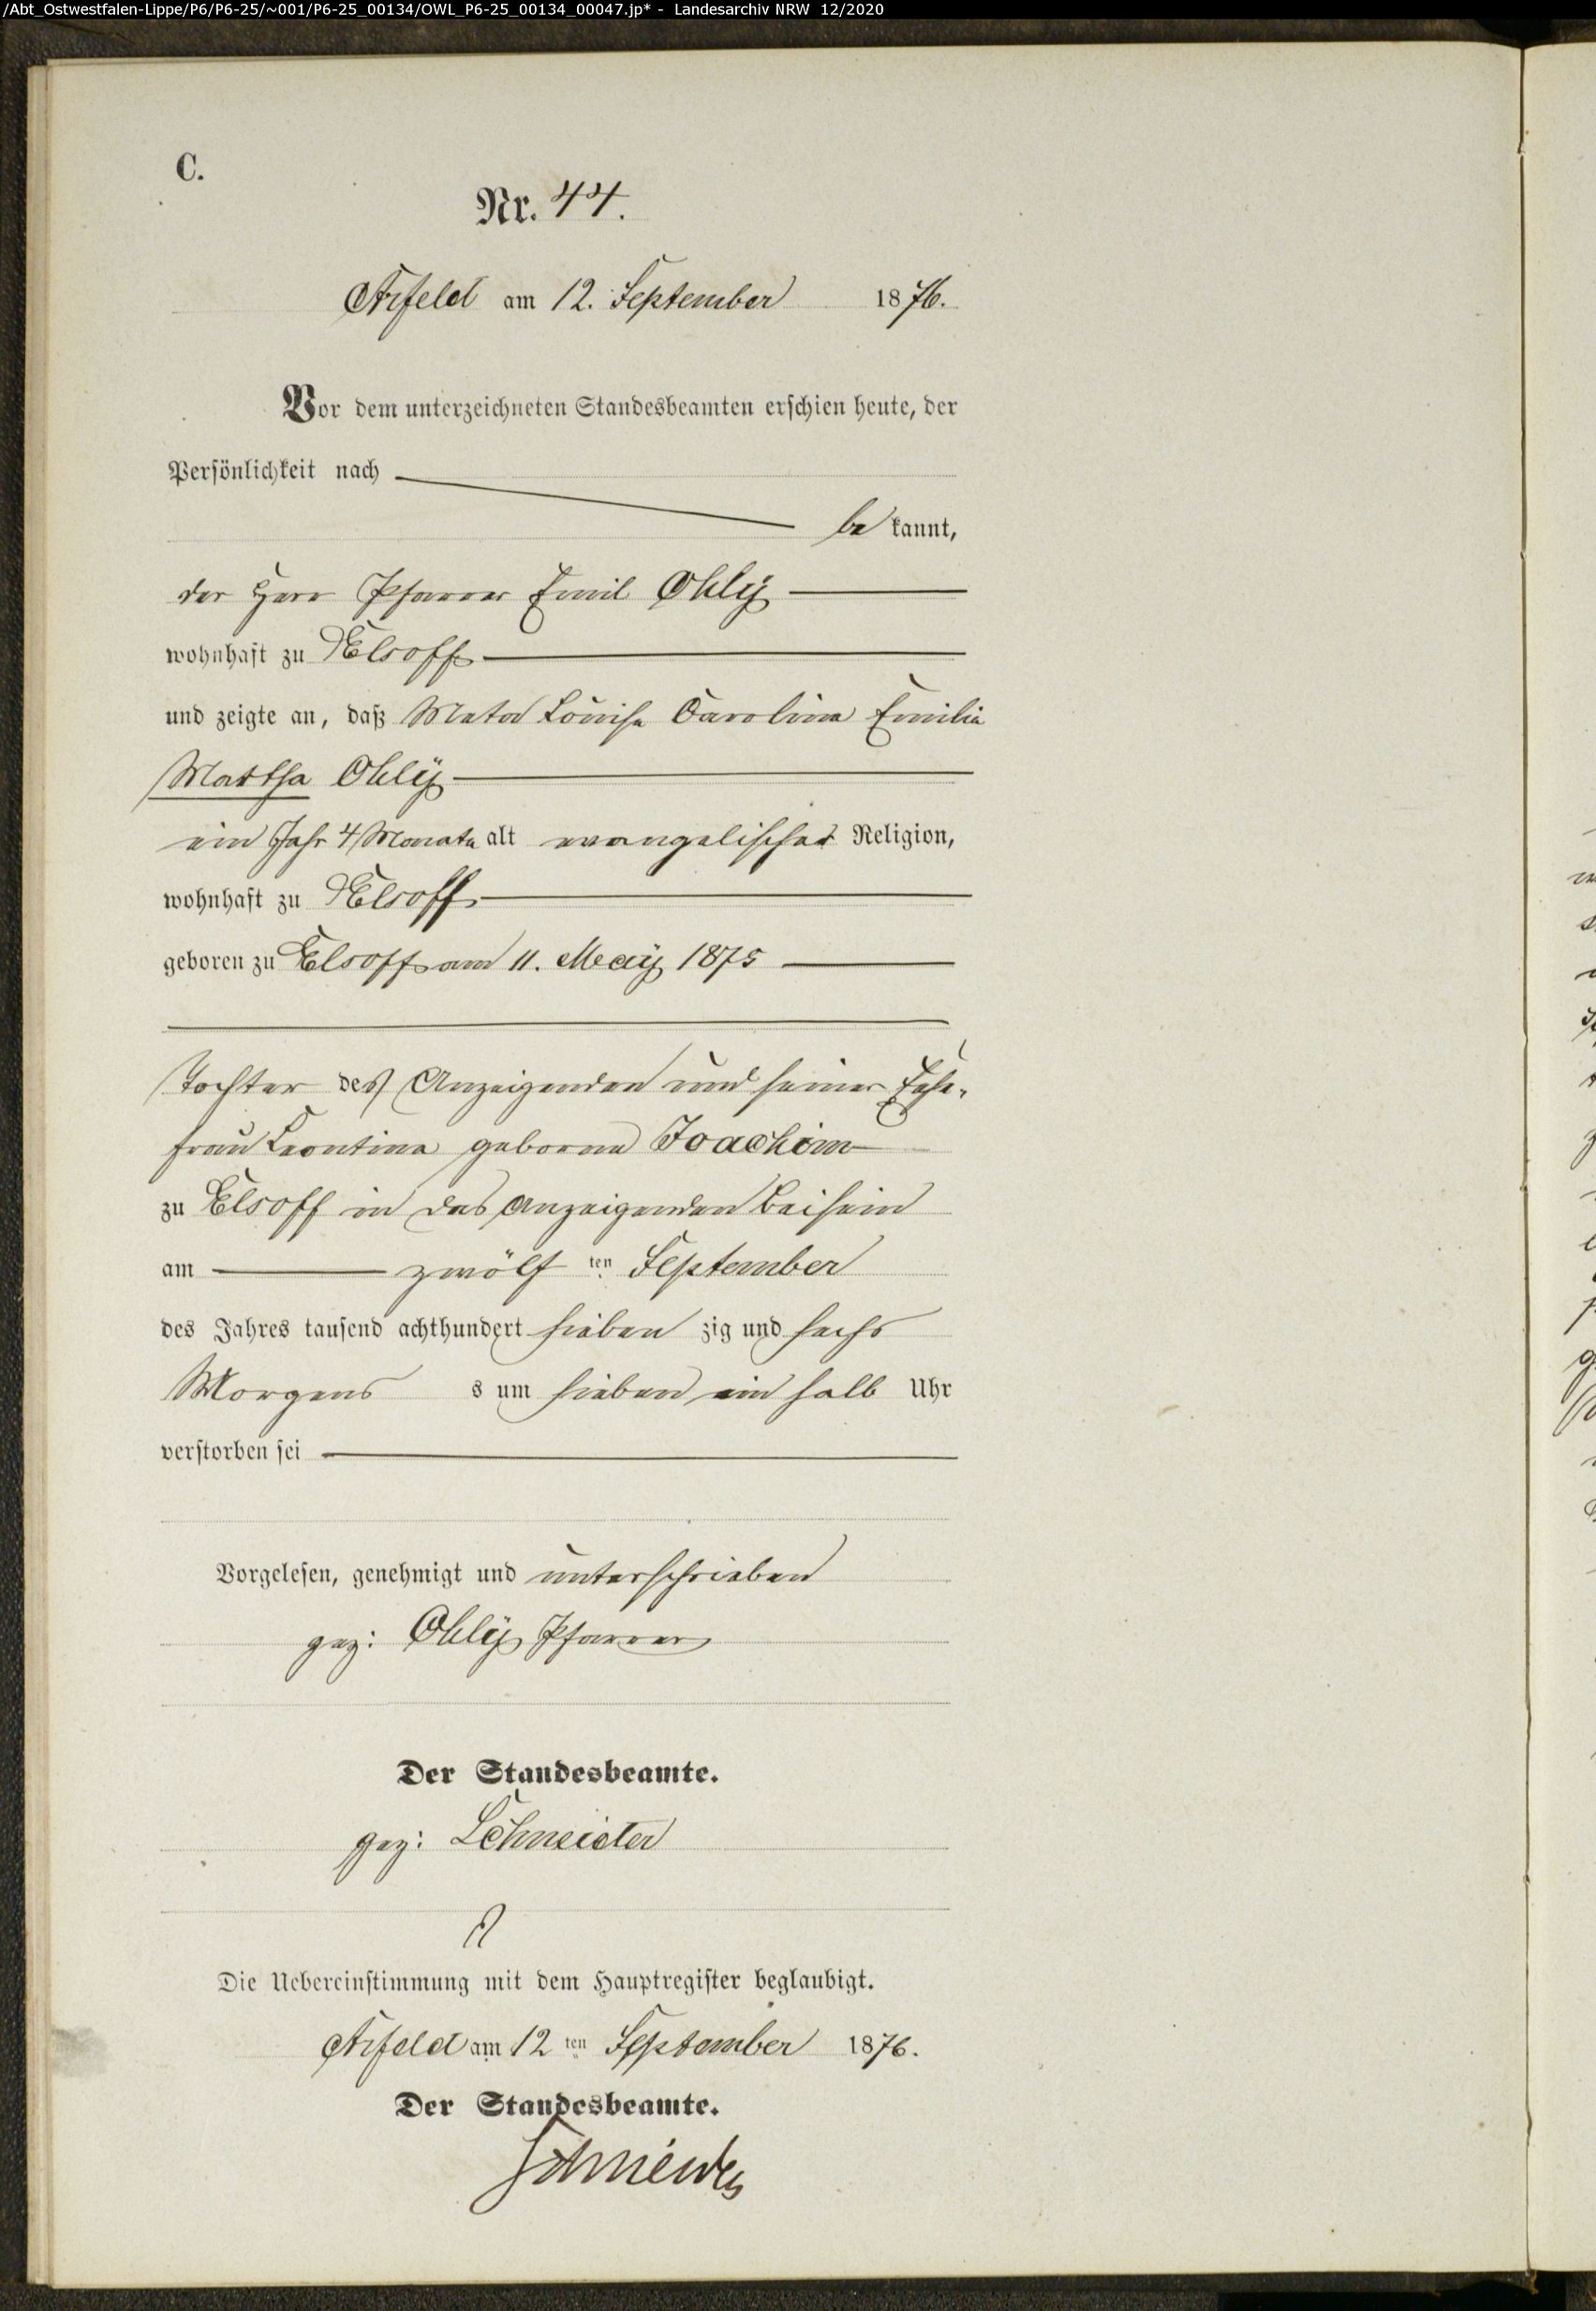 /Abt_Ostwestfalen-Lippe/P6/P6-25/~001/P6-25_00134/OWL_P6-25_00134_00047.jp* - Landesarchiv NRW 12/2020
C.
Nr. 44.
Arfeld am 12. September 1876.
Vor dem unterzeichneten Standesbeamten erschien heute, der
Persönlichkeit nach
be kannt,
der Herr Pfarrer Emil Ohlÿ
wohnhaft zu Elsoff
und zeigte an, daß Meta Louise Carolina Emilie
Martha Ohlÿ
ein Jahr 4 Monate alt evangelischer Religion,
wohnhaft zu Elsoff
geboren zu Elsoff am 11. Maÿ 1875
Tochter des Anzeigenden und seiner Ehe-
frau Leontine geborne Joachim
zu Elsoff in des Anzeigenden Beisein
am zwölf ten September
des Jahres tausend achthundert sieben zig und sechs
Morgens s um sieben ein halb Uhr
verstorben sei
Vorgelesen, genehmigt und unterschrieben
gez: Ohlÿ Pfarrer
Der Standesbeamte.
gez: Schneider
Die Uebereinstimmung mit dem Hauptregister beglaubigt.
Arfeld am 12 ten September 1876.
Der Standesbeamte.
Schneider